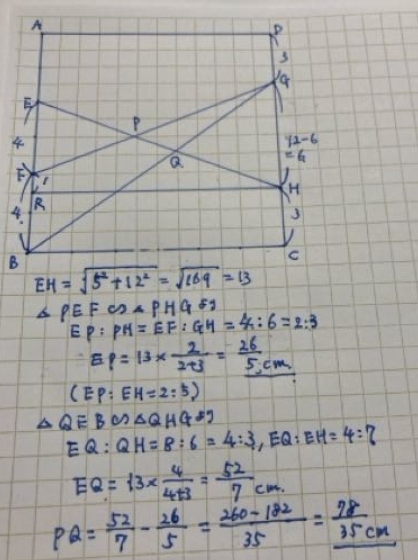 A
D
3
G
E
P
4
Q
12-6
=6
F
1
H
R
4
3
B
C
EH = √5²+12² = √169 = 13
△PEF∽△PHGより
EP:PH=EF:GH=4:6=2:3
EP=13×2/(2+3)=26/5 cm
(EP:EH=2:5)
△QEB∽△QHGより
EQ:QH=8:6=4:3, EQ:EH=4:7
EQ=13×4/(4+3)=52/7 cm.
PQ=52/7-26/5=(260-182)/35=78/35 cm